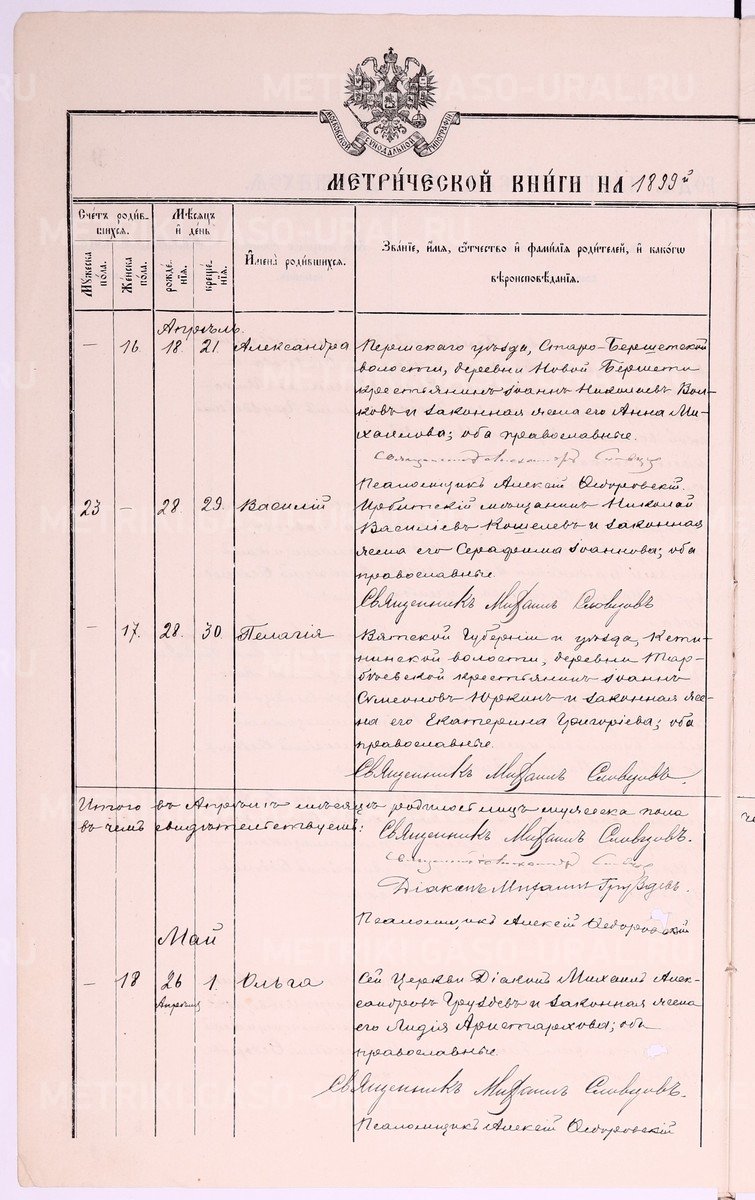 METRIKI.GASO-URAL.RU
МОСКОВСКОЙ СѴНОДАЛЬНОЙ ТИПОГРАФІИ
МЕТРИ́ЧЕСКОЙ КНИ́ГИ НА 1899й
Сче́тъ роди́в-
шихся.
Мꙋжеска по́ла.
Же́нска по́ла.
Мѣ́сяцъ и҆ де́нь
рожде́-нїѧ.
креще́-нїѧ.
И҆мена̀ роди́вшихся.
Зва́нїе, и҆́мѧ, ѻ҆́тчество и҆ фами́лїѧ роди́телей, и҆ како́гѡ
вѣроисповѣ́данїѧ.
Апрѣль.
— 16. 18. 21. Александра Пермскаго уѣзда, Старо-Бершетской
волости, деревни Новой Бершети
крестьянинъ Іоаннъ Николаевъ Вол-
ковъ и законная жена его Анна Ми-
хаилова; оба православные.
Псаломщикъ Алексій Ѳедоровскій.
23 — 28. 29. Василій Ирбитскій мѣщанинъ Николай
Василіевъ Кошелевъ и законная
жена его Серафима Іоаннова; оба
православные.
Священникъ Михаилъ Словцовъ
— 17. 28. 30. Пелагія Вятской Губерніи и уѣзда,
волости, деревни
крестьянинъ Іоаннъ
Симеоновъ Юркинъ и законная же-
на его Екатерина Григоріева; оба
православные.
Священникъ Михаилъ Словцовъ.
Итого въ Апрѣлѣ мѣсяцѣ родилось лицъ мужеска пола
въ чемъ свидѣтельствуемъ: Священникъ Михаилъ Словцовъ.
Діаконъ Михаилъ Груздевъ.
Псаломщикъ Алексій Ѳедоровскій
Май
— 18 26 1. Ольга Сей Церкви Діаконъ Михаилъ Алек-
Апрѣля
сандровъ Груздевъ и законная жена
его Лидія Аристархова; оба
православные.
Священникъ Михаилъ Словцовъ.
Псаломщикъ Алексій Ѳедоровскій